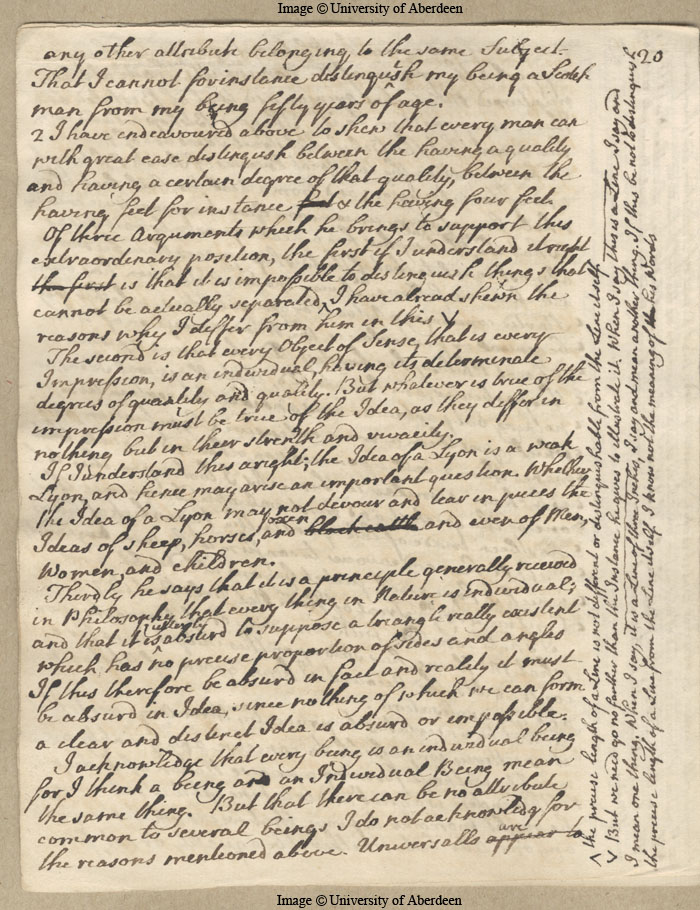 Image © University of Aberdeen
20
any other attribute belonging to the same Subject.
That I cannot forinstance distinguish my being a Scotch
man from my being fifty years of age.
2 I have endeavoured above to shew that every man can
with great ease distinguish between the having a quality
and having a certain degree of that quality, between the
having feet for instance & the having four feet.
Of three Arguments which he brings to support this
extraordinary position, the first if I understand it right
the first is that it is impossible to distinguish things that
cannot be actually separated, ^ I have alread shewn the
reasons why I differ from him in this V
The second is that every Object of Sense, that is every
Impression, is an individual, having its determinate
degrees of quantity and quality. But whatever is true of the
impression must be true of the Idea, as they differ in
nothing but in their strenth and vivacity.
If I understand this aright; the Idea of a Lyon is a weak
Lyon, and hence may arise an important question. Whether
the Idea of a Lyon may not devour and tear in pieces the
oxen
Ideas of sheep, horses, and black cattle and even of Men,
Women, and children.
Thirdly he says that it is a principle generally received
in Philosophy that every thing in Nature is individual;
utterly
and that it is absurd to suppose a triangle really existent
which has no precise proportion of sides and angles
If this therefore be absurd in fact and reality it must
be absurd in Idea, since nothing of which we can form
a clear and distinct Idea is absurd or impossible.
I acknowledge that every being is an individual being
for I think a being and an Individual Being mean
the same thing. But that there can be no attribute
common to several beings I do not acknowledg for
are
the reasons mentioned above. Universalls appear to
^ the precise length of a Line is not different or distinguishable from the Line itself
V But we need go no farther than the Instance he gives to illustrate it. When I say this is a Line I say and
I mean one thing. When I say, it is a Line of three Inches, I say and mean another thing. If this be not to distinguish
the precise length of a Line from the Line itself I know not the meaning of his Words
Image © University of Aberdeen